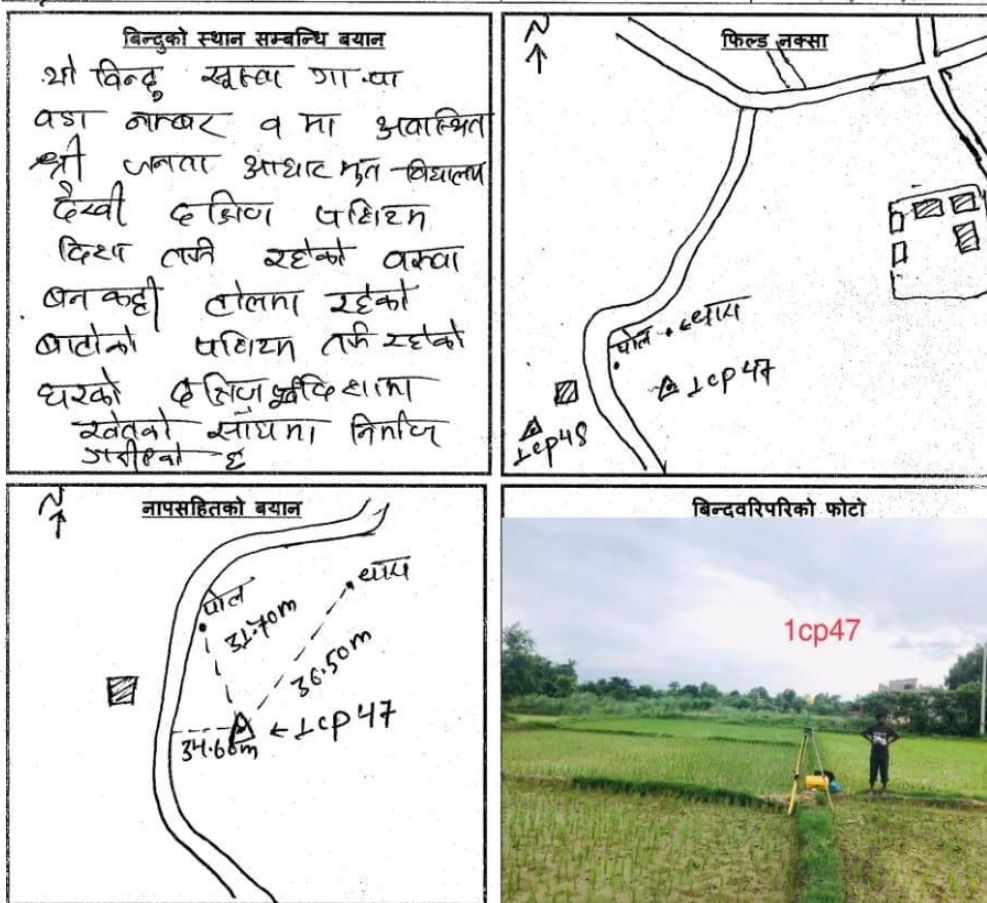 बिन्दुको स्थान सम्बन्धि बयान
यो बिन्दु गा.पा
वडा नम्बर १ मा अवास्थित
श्री जनता आधारभुत विद्यालय
देखी दक्षिण पश्चिम
दिशा तर्फ रहेको
टोलमा रहेको
बाटोको पश्चिम तर्फ रहेको
घरको दक्षिण पूर्व दिशामा
खेतको साँधमा निर्माण
गरीएको छ
N
फिल्ड नक्सा
पोल
थाम
1cp47
1cp48
N
नापसहितको बयान
पोल
थाम
31.70m
36.50m
1cp47
34.66m
बिन्दवरिपरिको फोटो
1cp47